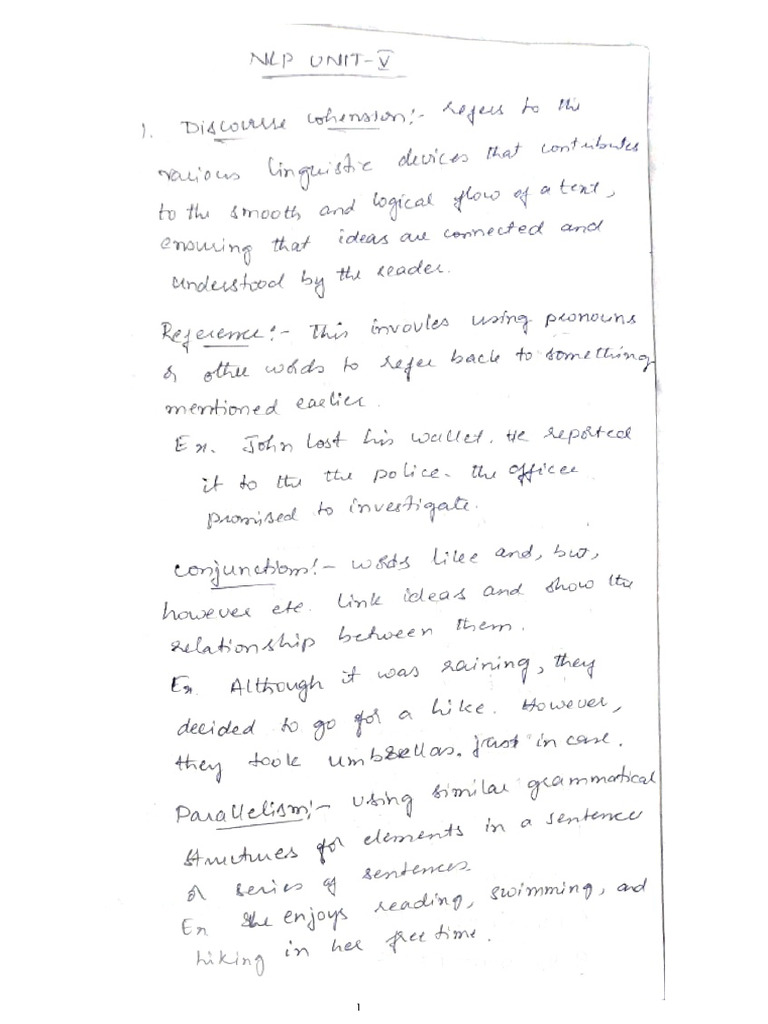 NLP UNIT-V
1. Discourse cohension:- refers to the
various linguistic devices that contributes
to the smooth and logical flow of a text,
ensuring that ideas are connected and
understood by the reader.
Reference:- This invovles using pronouns
or other words to refer back to something
mentioned earlier.
Ex. John lost his wallet. He reported
it to the the police. The officer
promised to investigate.
Conjunctions:- words like and, but,
however etc. link ideas and show the
relationship between them.
Ex. Although it was raining, they
decided to go for a hike. However,
they took umbrellas. just in case.
Parallelism:- using similar grammatical
structures for elements in a sentence
or series of sentences.
Ex She enjoys reading, swimming, and
hiking in her free time.
1